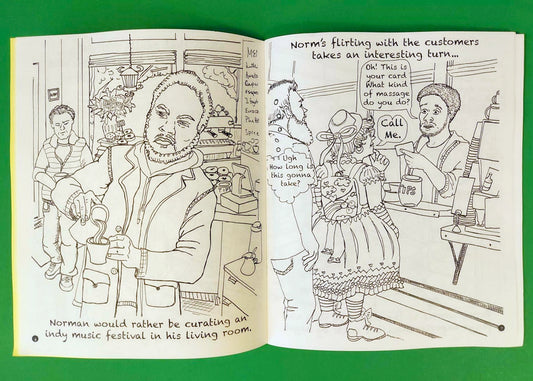 ME
Norman would rather be curating an
indy music festival in his living room.
Norm's flirting with the customers
takes an interesting turn...
Oh! This is
your card
What kind
of massage
do you do?
Call
Me.
Ugh
How long is
this gonna
take?
TIPS